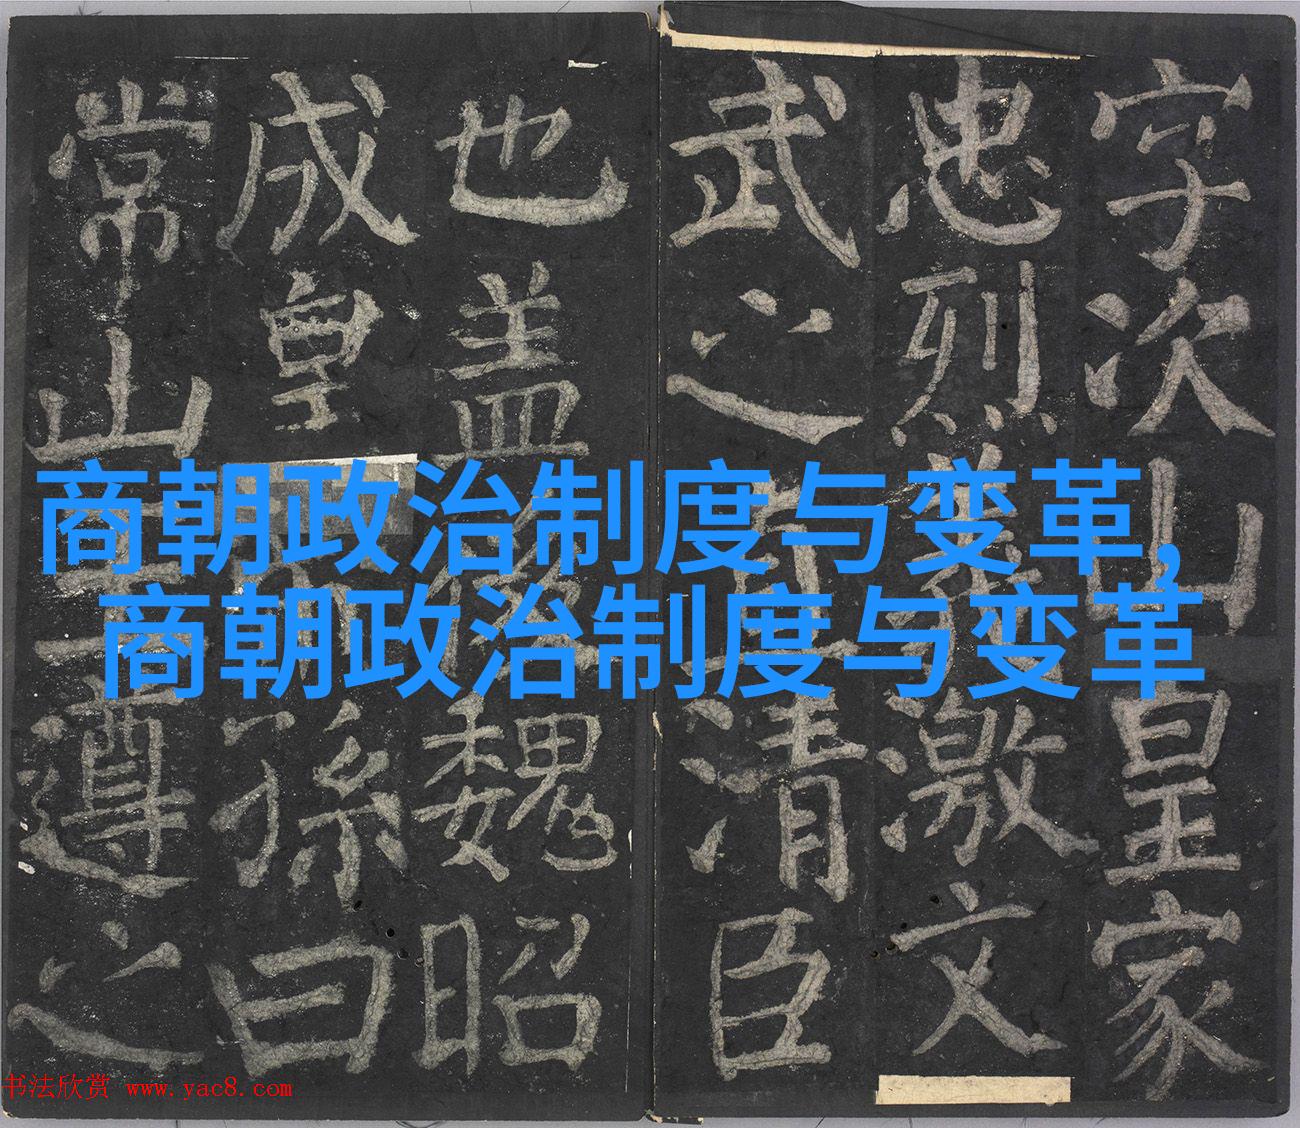 字次山皇家
忠烈激文
武之清臣
也盖後魏昭
成皇孫曰
常山遵之
商朝政治制度与变革,
商朝政治制度与变革
书法欣赏 www.yac8.com